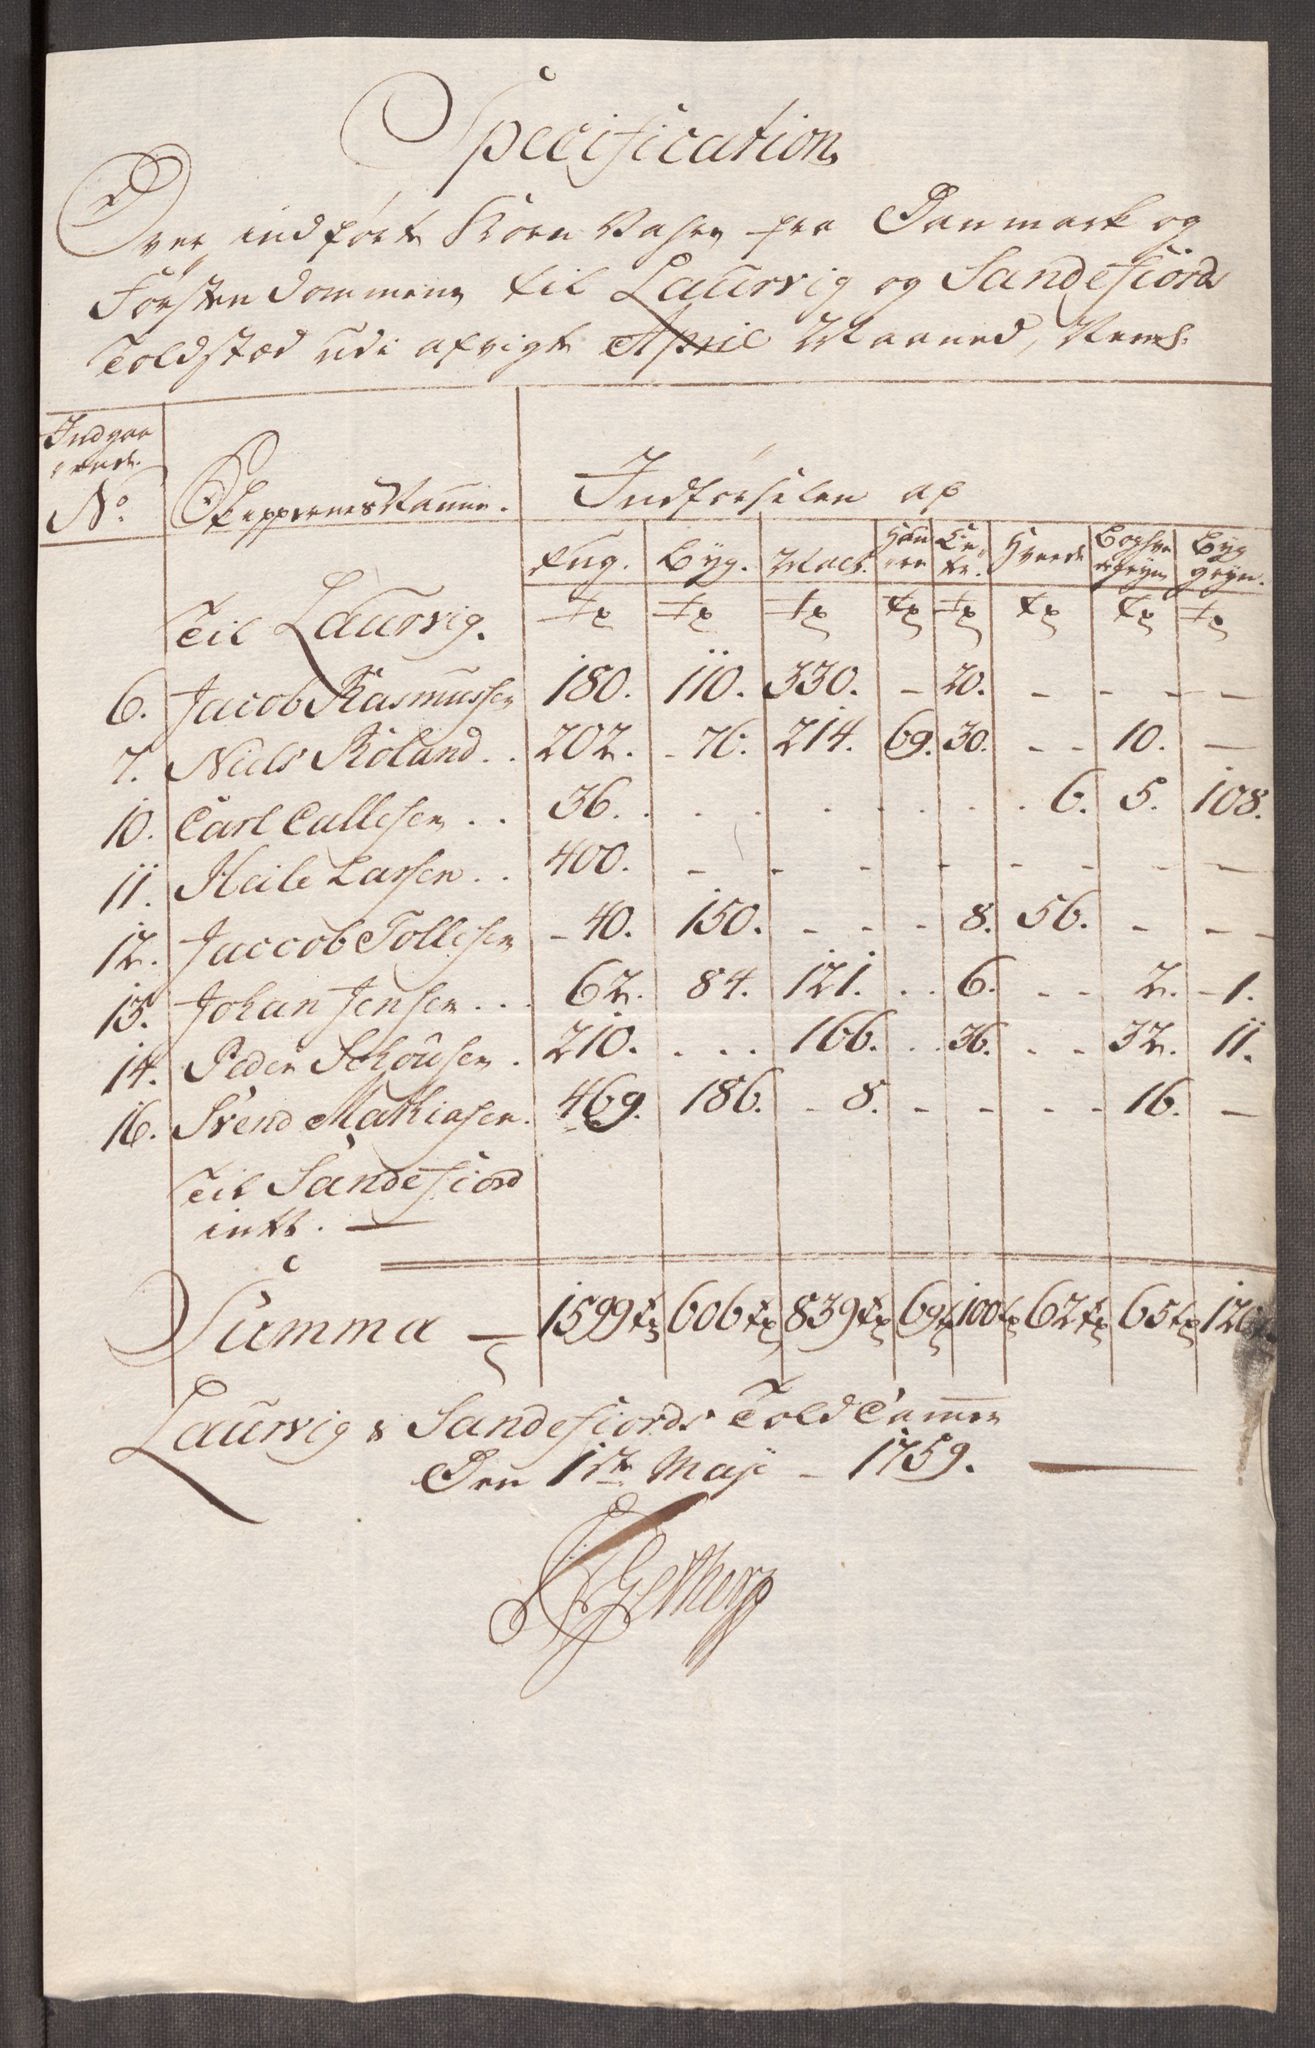 Specification
Over indførte Korn Vahre fra Danmark og
Førstendommene til Laurvig og Sandefiords
Toldstæd udi afvigte April Maaned, Neml:
Indgaa
ende
No. Skeppernes Nafne. Indførselen af
Rug. Byg. Malt. Hau re Er ter. Hvede Boghve degryn Byg gryn.
Til Laurvig. tr tr tr tr tr tr tr tr
6. Jacob Rasmussen 180. 110. 330. - 20. - - - -
7. Niels Röland . . 202. - 76. 214. 69. 30. - - 10. -
10. Carl Callesen . . 36. . . . . . . . 6. 5. 108.
11. Heile Larsen . . 400. - - - - - - - -
12. Jaccob Tollesen - 40. 150. - - - 8. 56. - - -
13. Johan Jensen . . . 62. 84. 121. . . 6. - - 2. - 1.
14. Peder Schousen . 210. . . . 166. . . 36. - - 32. 11.
16. Svend Mathiasen. 469. 186. - 8. - - - - 16. -
Til Sandefiord
intet. —
Summa — 1599 tr 606 tr 839 tr 69 tr 100 tr 62 tr 65 tr 120 tr
Laurvig & Sandefiords Told Cammer
Den 1ste Maji - 1759. —